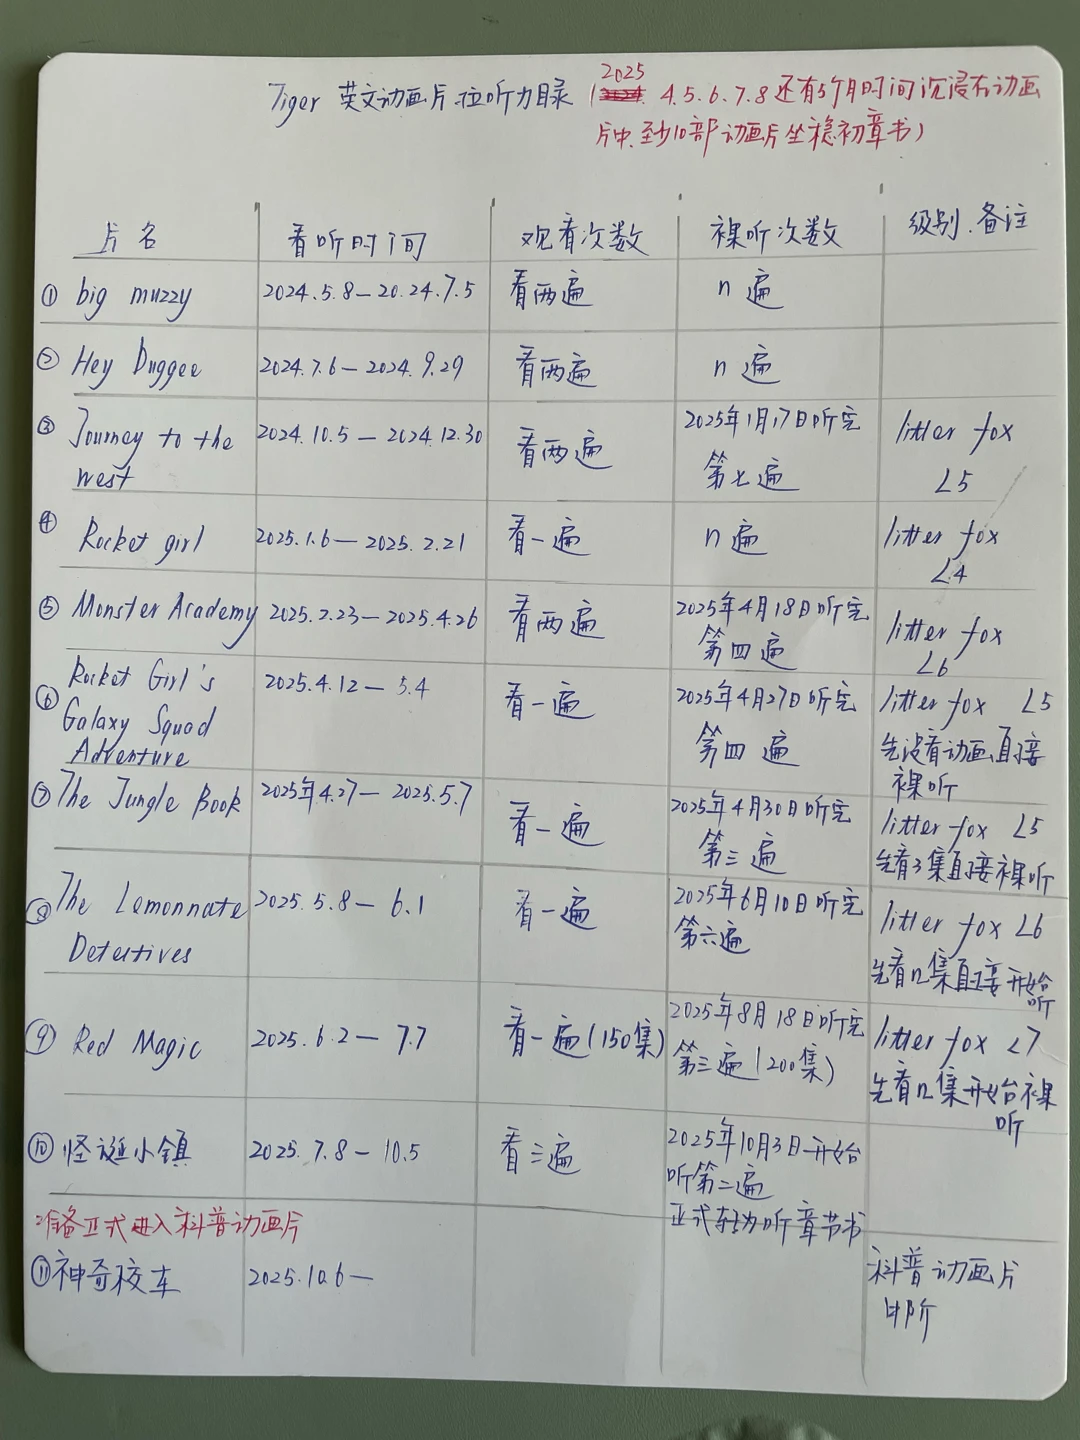 Tiger 英文动画片拉听力目录
(2025 4.5.6.7.8还有5个月时间沉浸在动画
片中.至少10部动画片坐稳初章书)
片名 看听时间 观看次数 裸听次数 级别.备注
① big muzzy 2024.5.8—20.24.7.5 看两遍 n遍
② Hey Duggee 2024.7.6—2024.9.29 看两遍 n遍
③ Journey to the 2024.10.5—2024.12.30 看两遍 2025年1月17日听完 litter fox
west 第七遍 L5
④ Rocket girl 2025.1.6—2025.2.21 看一遍 n遍 litter fox
L4
⑤ Monster Academy 2025.2.23—2025.4.26 看两遍 2025年4月18日听完 litter fox
第四遍 L6
⑥ Rocket Girl's 2025.4.12—5.4 看一遍 2025年4月27日听完 litter fox L5
Galaxy Squad 第四遍 先没看动画,直接
Adventure 裸听
⑦ The Jungle Book 2025年4.27—2025.5.7 看一遍 2025年4月30日听完 litter fox L5
第三遍 先看3集直接裸听
⑧ The Lemonnate 2025.5.8—6.1 看一遍 2025年6月10日听完 litter fox L6
Detectives 第六遍 先看n集直接开始
听
⑨ Red Magic 2025.6.2—7.7 看一遍(150集) 2025年8月18日听完 litter fox L7
第三遍(200集) 先看n集开始裸
听
⑩ 怪诞小镇 2025.7.8—10.5 看三遍 2025年10月3日开始
听第二遍
正式转为听章节书
准备正式进入科普动画片
⑪ 神奇校车 2025.10.6— 科普动画片
进阶